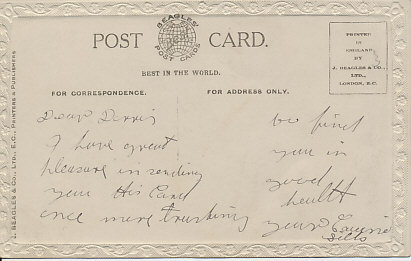 BEAGLES'
POST CARDS
POST CARD.
BEST IN THE WORLD.
PRINTED
IN
ENGLAND
BY
J. BEAGLES & CO.,
LTD.,
LONDON, E.C.
FOR CORRESPONDENCE.
FOR ADDRESS ONLY.
J. BEAGLES & CO., LTD., E.C., PRINTERS & PUBLISHERS
Dear Dorris
I have great
pleasure in sending
you this Card
once more trusting
to find
you in
good
health
yours